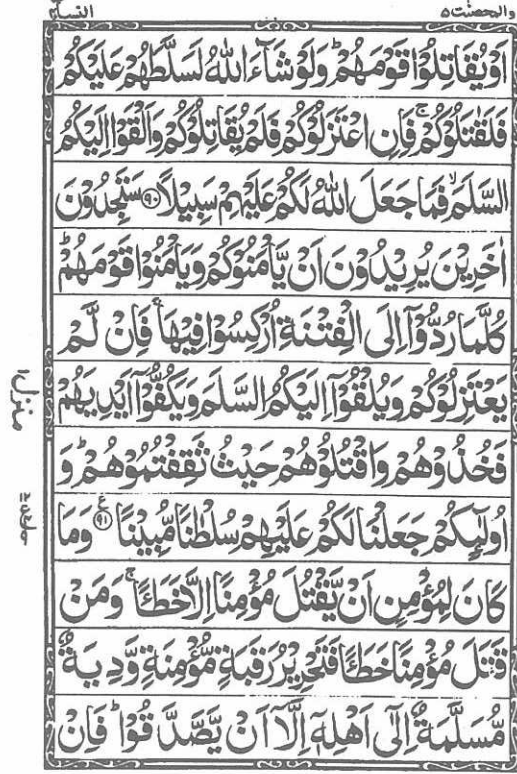 والمحصنت ۵
النساء ۴
اَوْ يُقَاتِلُوْا قَوْمَهُمْ ؕ وَلَوْ شَآءَ اللّٰهُ لَسَلَّطَهُمْ عَلَيْكُمْ
فَلَقٰتَلُوْكُمْ ۚ فَاِنِ اعْتَزَلُوْكُمْ فَلَمْ يُقَاتِلُوْكُمْ وَاَلْقَوْا اِلَيْكُمُ
السَّلَمَ ۙ فَمَا جَعَلَ اللّٰهُ لَكُمْ عَلَيْهِمْ سَبِيْلًا ۹۰ سَتَجِدُوْنَ
اٰخَرِيْنَ يُرِيْدُوْنَ اَنْ يَّاْمَنُوْكُمْ وَيَاْمَنُوْا قَوْمَهُمْ ؕ
كُلَّمَا رُدُّوْۤا اِلَى الْفِتْنَةِ اُرْكِسُوْا فِيْهَا ۚ فَاِنْ لَّمْ
يَعْتَزِلُوْكُمْ وَيُلْقُوْۤا اِلَيْكُمُ السَّلَمَ وَيَكُفُّوْۤا اَيْدِيَهُمْ
فَخُذُوْهُمْ وَاقْتُلُوْهُمْ حَيْثُ ثَقِفْتُمُوْهُمْ ؕ وَ
اُولٰٓئِكُمْ جَعَلْنَا لَكُمْ عَلَيْهِمْ سُلْطٰنًا مُّبِيْنًا ۹۱ ع وَمَا
كَانَ لِمُؤْمِنٍ اَنْ يَّقْتُلَ مُؤْمِنًا اِلَّا خَطَـًٔا ۚ وَمَنْ
قَتَلَ مُؤْمِنًا خَطَـًٔا فَتَحْرِيْرُ رَقَبَةٍ مُّؤْمِنَةٍ وَّدِيَةٌ
مُّسَلَّمَةٌ اِلٰٓى اَهْلِهٖۤ اِلَّاۤ اَنْ يَّصَّدَّقُوْا ؕ فَاِنْ
منزل ۱